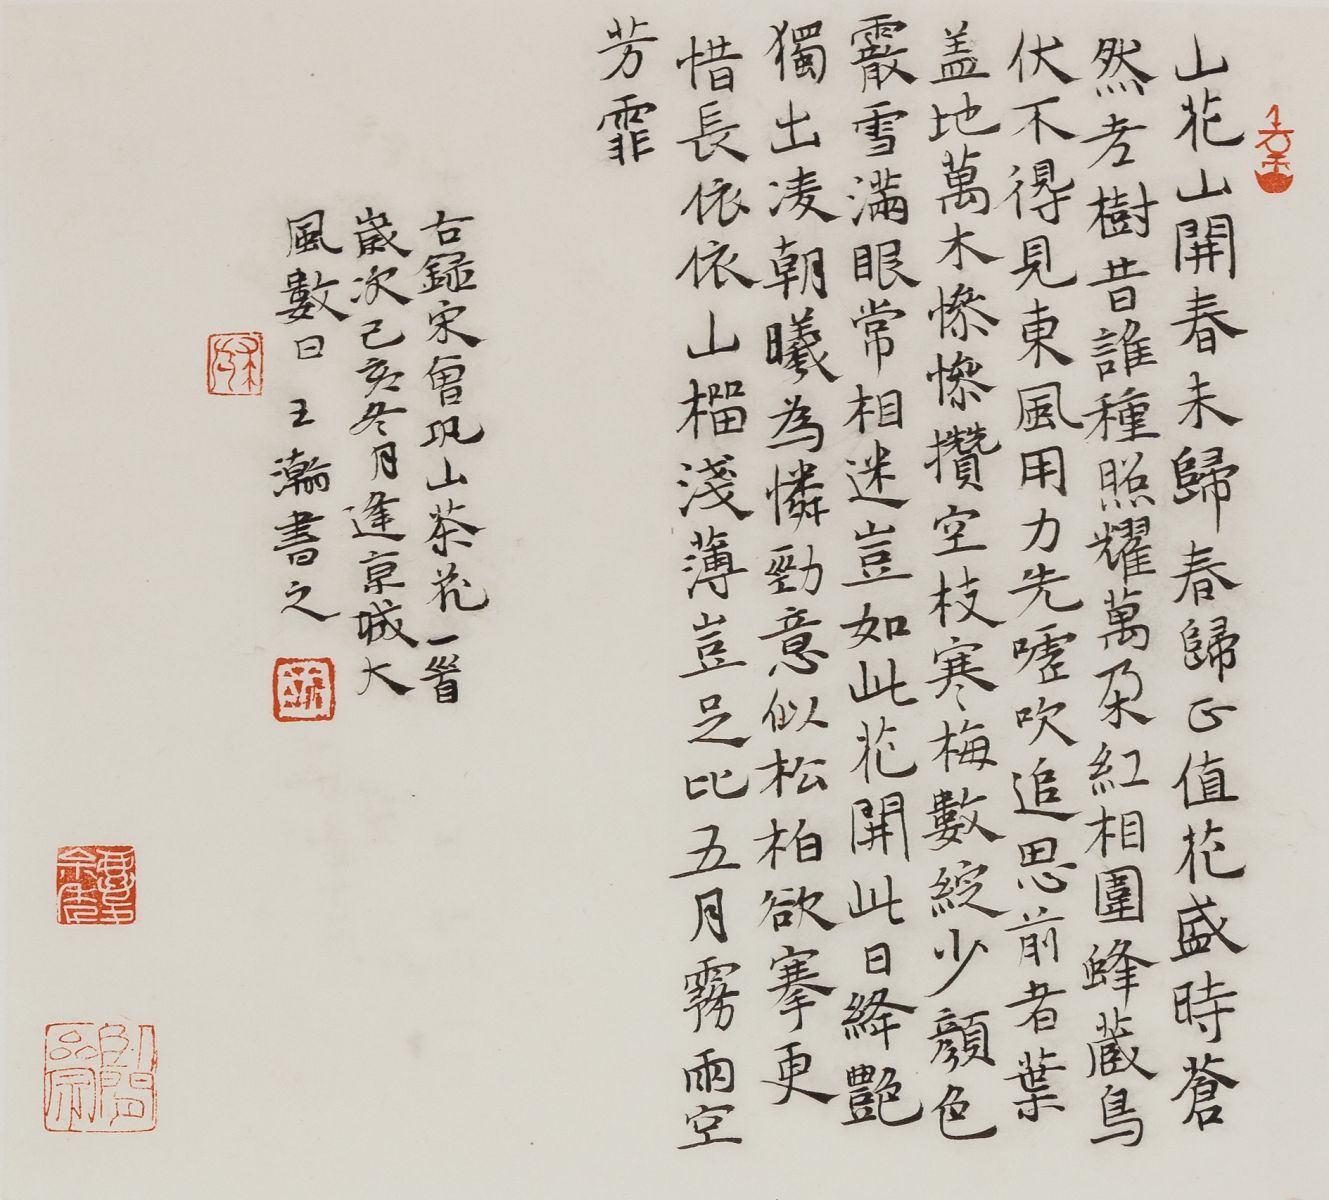 山花山開春未歸春歸正值花盛時蒼
然老樹昔誰種照耀萬朵紅相圍蜂蔵鳥
伏不得見東風用力先噓吹追思前者葉
盖地萬木慘慘攢空枝寒梅數綻少顏色
霰雪滿眼常相迷豈如此花開此日絳艷
獨出凌朝曦為憐勁意似松柏欲搴更
惜長依依山榴淺薄豈足比五月霧雨空
芳霏
右録宋曾巩山茶花一首
歲次己亥冬月逢京城大
風數日 王瀚書之